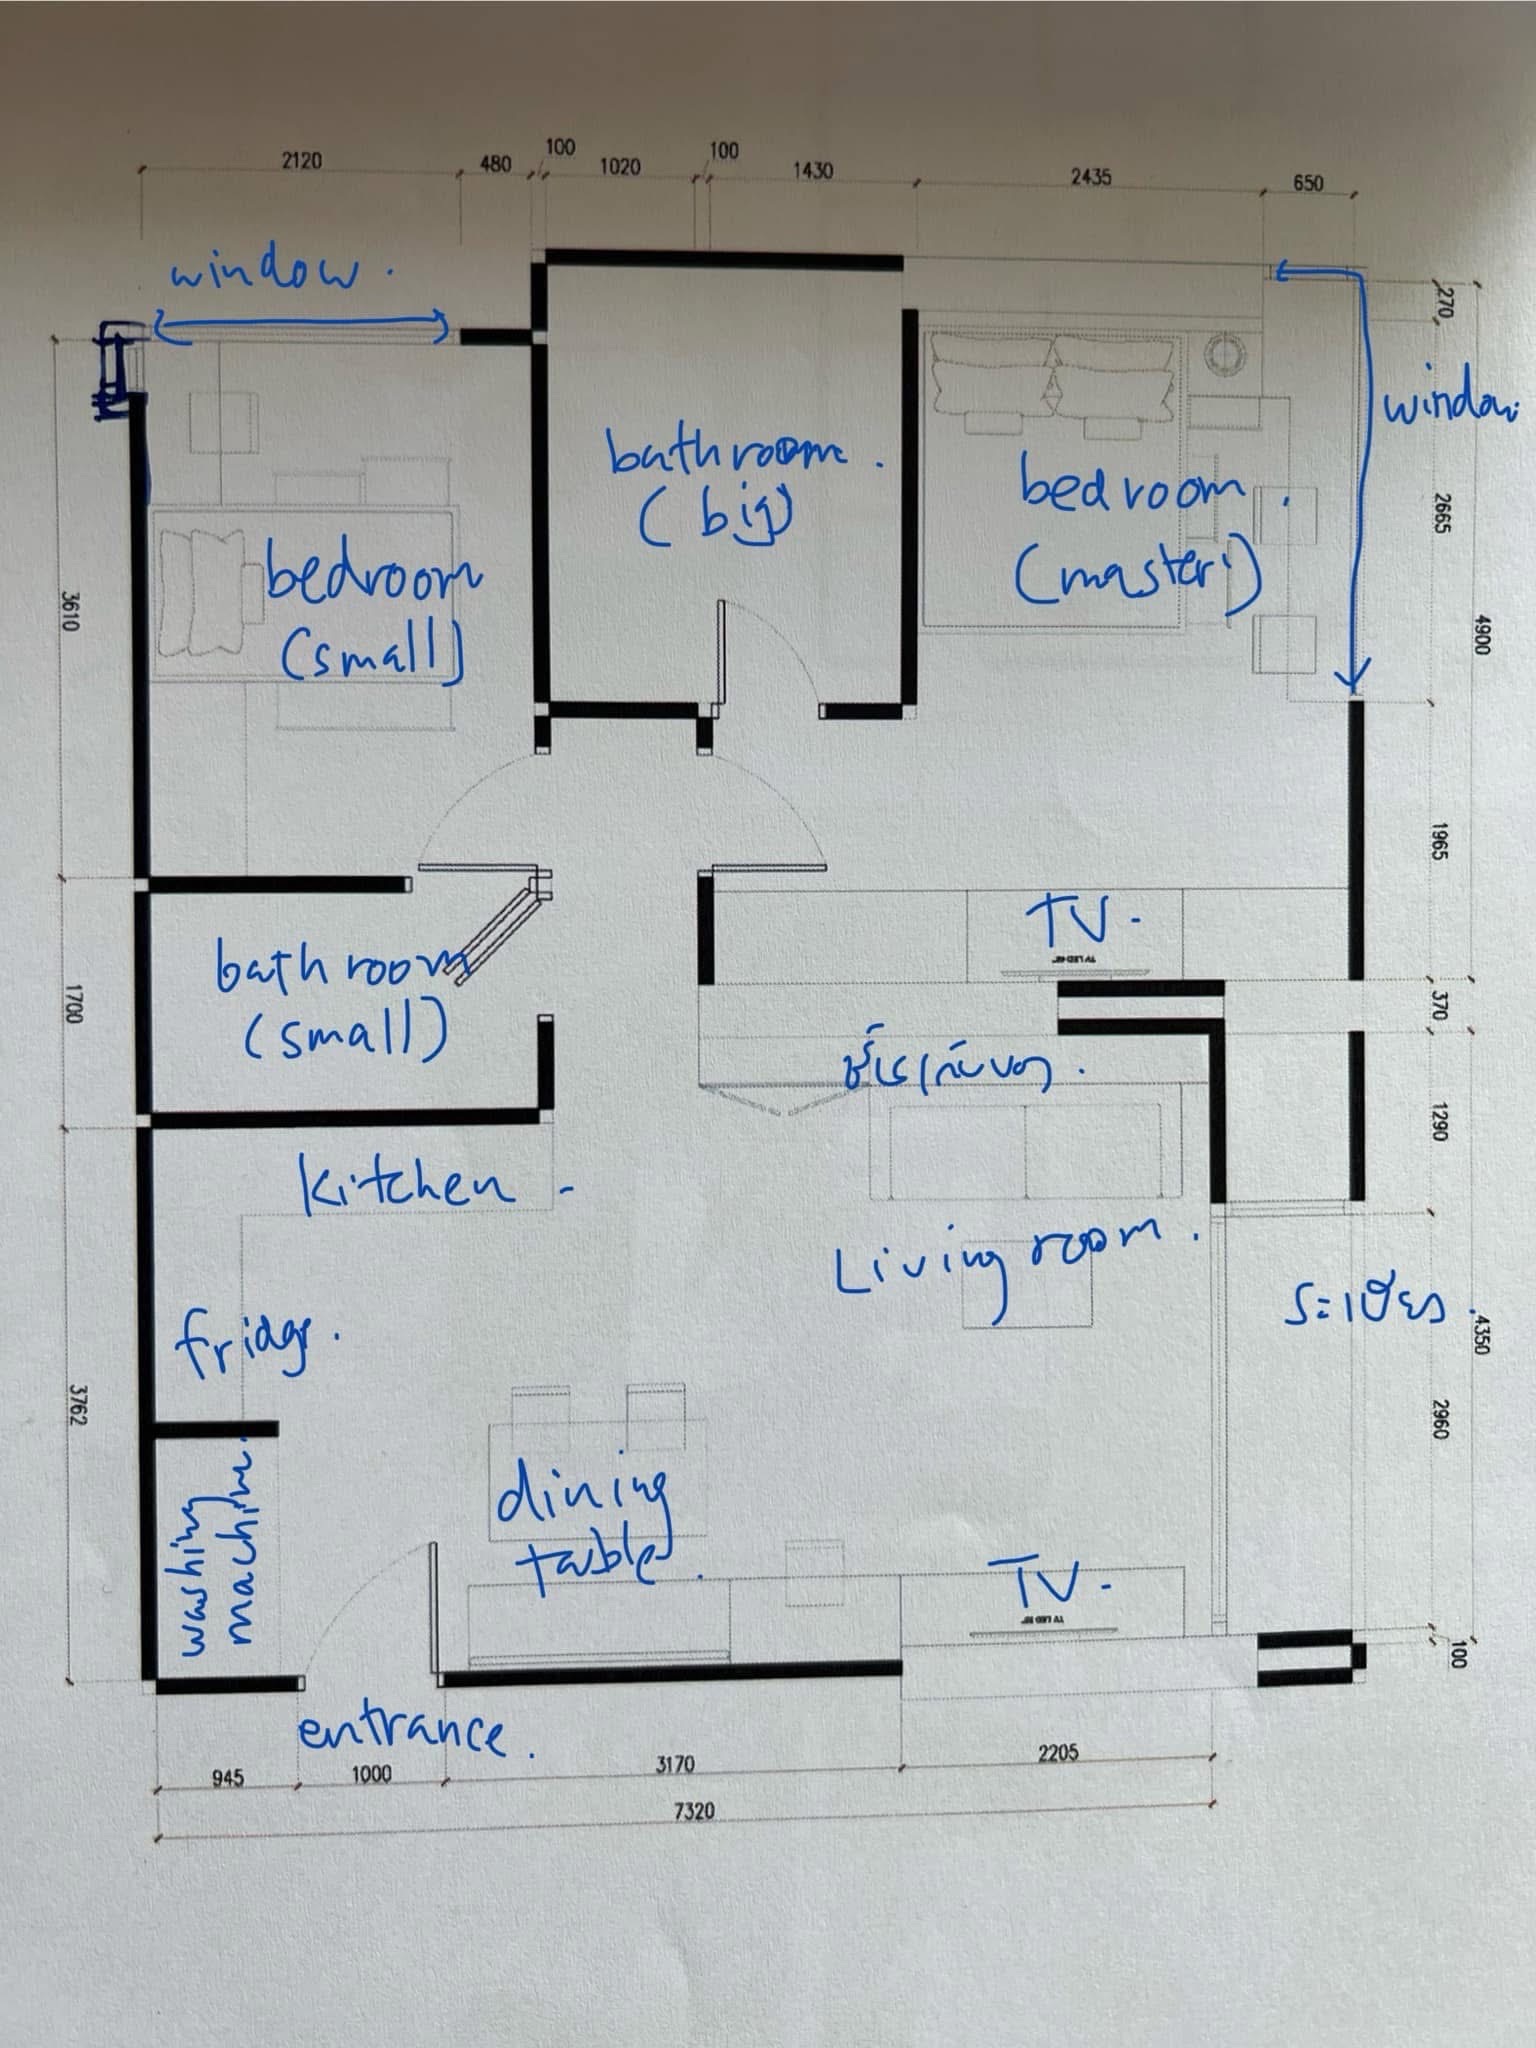 100
100
2120
480
1020
1430
2435
650
window.
270
window
bathroom.
(big)
bedroom.
(master)
2665
bedroom
(small)
3610
4900
1965
TV.
bathroom
(small)
1700
370
ชั้นเก็บของ.
1290
Kitchen
Living room.
ระเบียง.
fridge.
4350
3762
2960
dining
table.
washing
machine.
TV.
100
entrance.
945
1000
3170
2205
7320